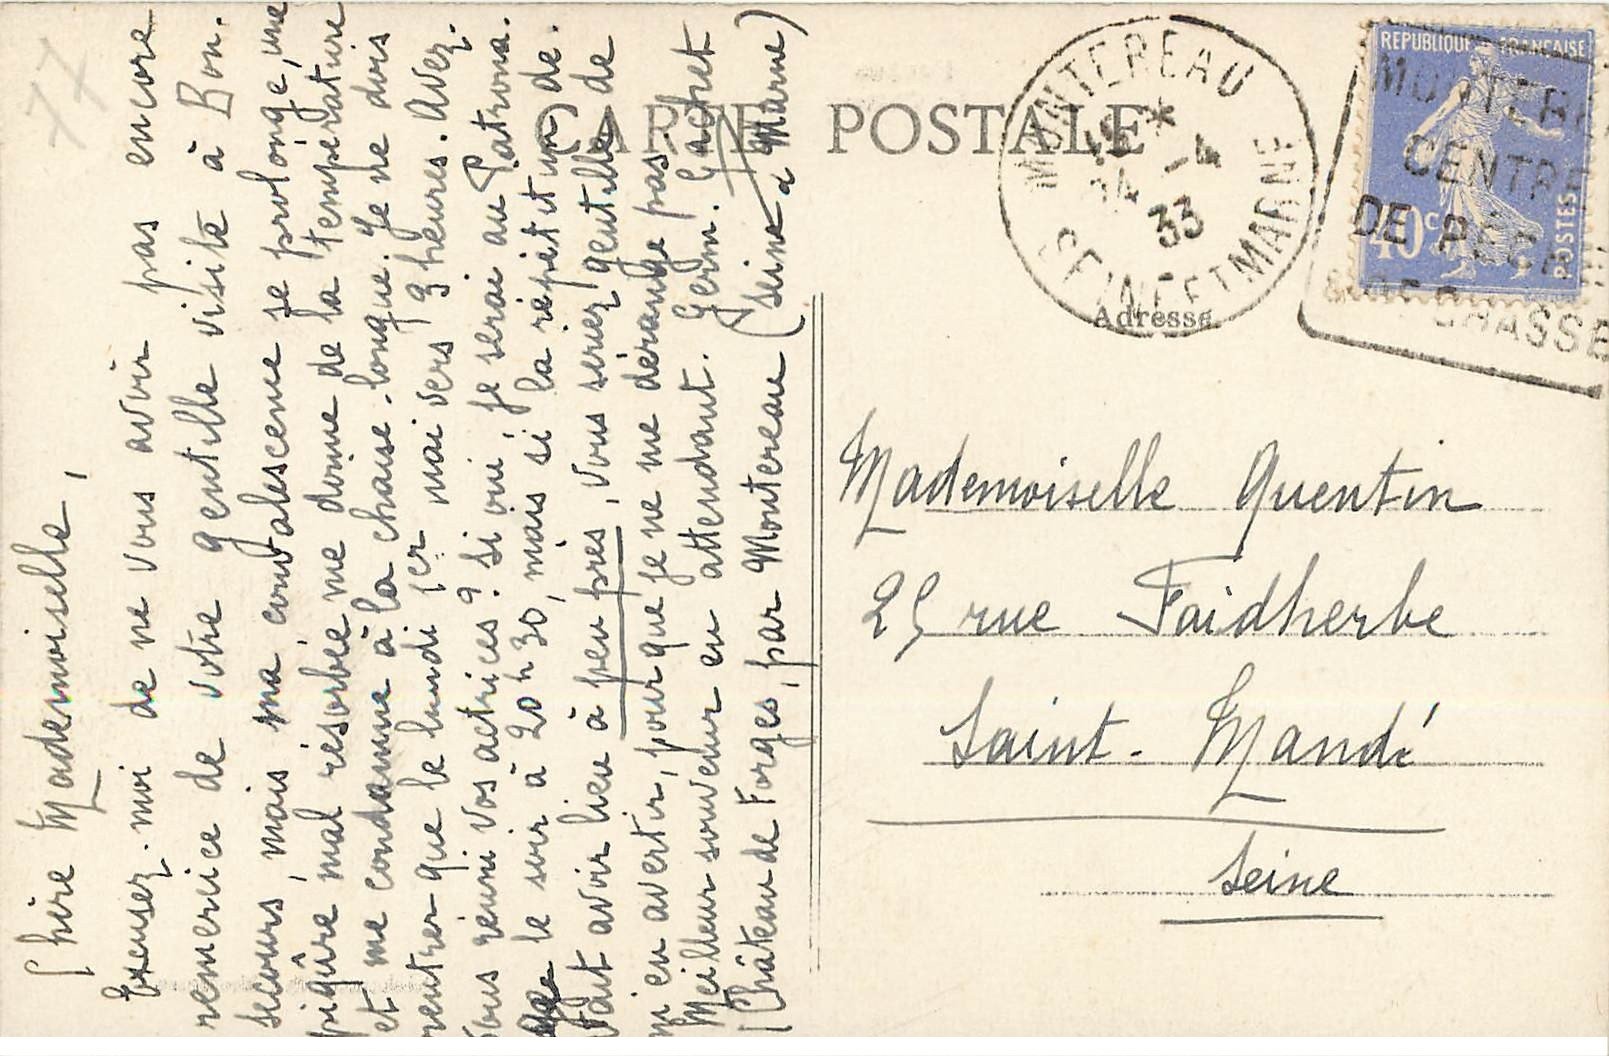 77
CARTE POSTALE
Chère Mademoiselle,
Excusez-moi de ne vous avoir pas encore
remercice de votre gentille visite à Bon.
secours, mais ma convalescence se prolonge, une
piqûre mal résorbée me donne de la température
et me condamne à la chaise-longue. Je ne dois
rentrer que le lundi 1er mai vers 3 heures. Avez.
vous réuni vos actrices? Si oui, je serai au Patrona.
ge le soir à 20h30, mais si la répétition de.
vait avoir lieu à peu près, vous serez gentille de
m'en avertir, pour que je ne me dérange pas.
Meilleur souvenir en attendant. Germ. Gachet
(Château de Forges, par Montereau (Seine & Marne)
MONTEREAU
18 *
14 -4
33
SEINE ET MARNE
REPUBLIQUE FRANÇAISE
40c
POSTES
MONTEREA
CENTRE
DE PECHE
& DE CHASSE
Adresse
Mademoiselle Quentin
25 rue Faidherbe
Saint-Mandé
Seine